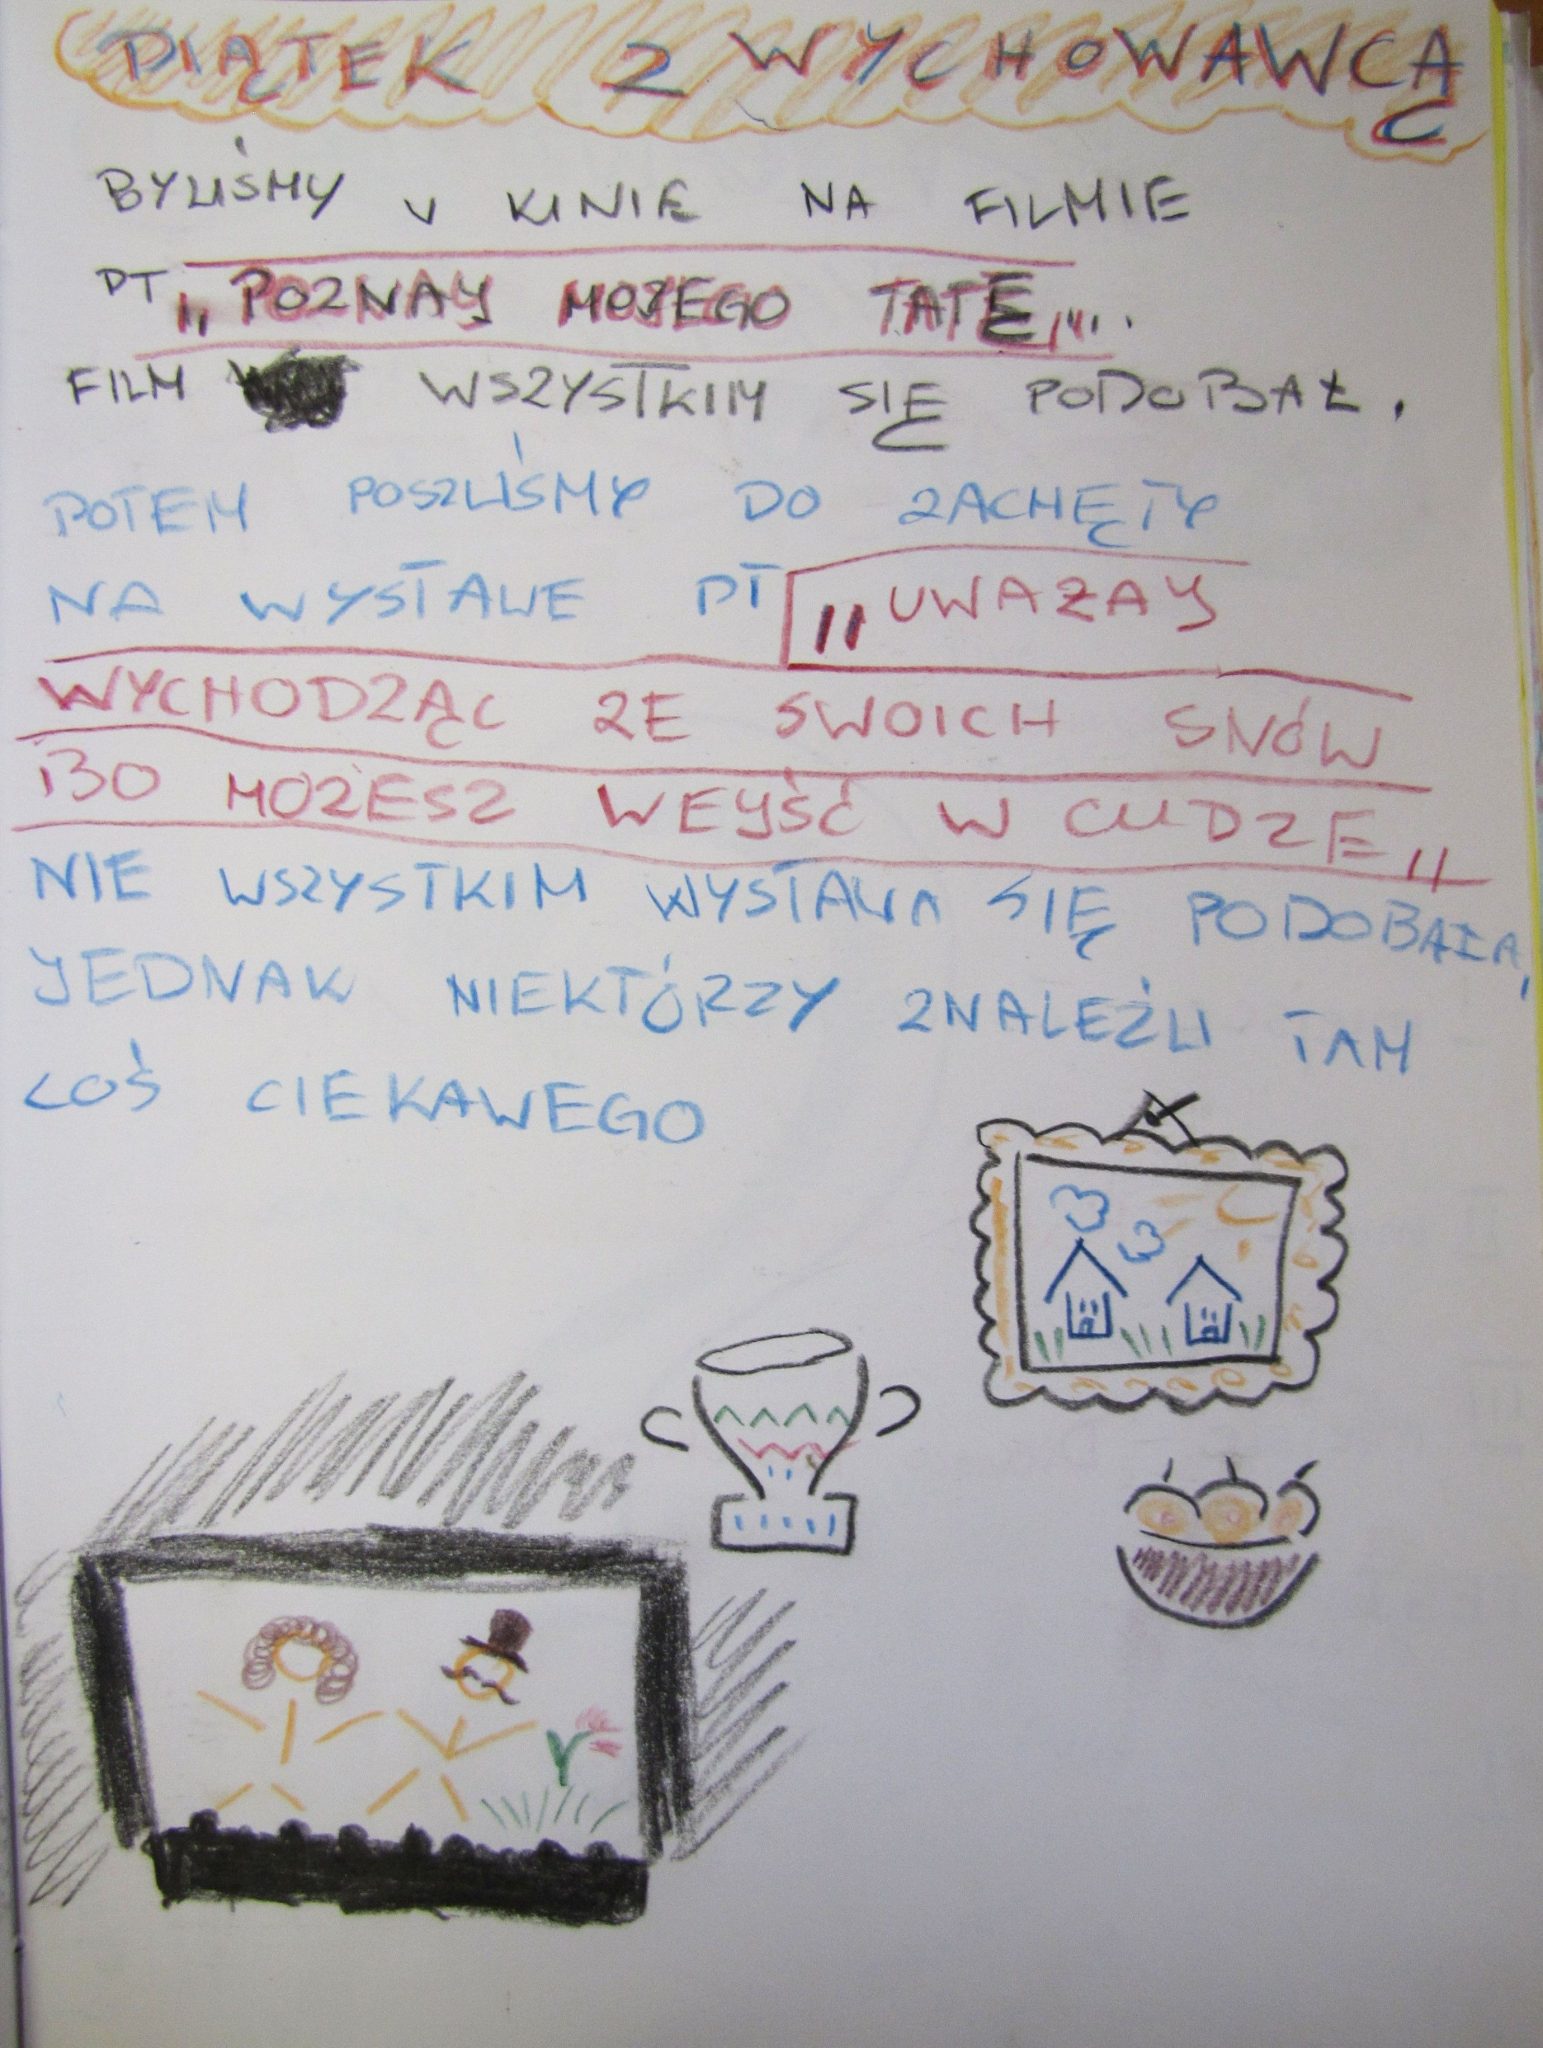 PIĄTEK Z WYCHOWAWCĄ
BYLIŚMY W KINIE NA FILMIE
PT „POZNAJ MOJEGO TATĘ".
FILM WSZYSTKIM SIĘ PODOBAŁ.
POTEM POSZLIŚMY DO ZACHĘTY
NA WYSTAWE PT „UWAZAJ
WYCHODZĄC ZE SWOICH SNÓW
BO MOZESZ WEJŚĆ W CUDZE"
NIE WSZYSTKIM WYSTAWA SIĘ PODOBAŁA,
JEDNAK NIEKTÓRZY ZNALEŹLI TAM
COŚ CIEKAWEGO